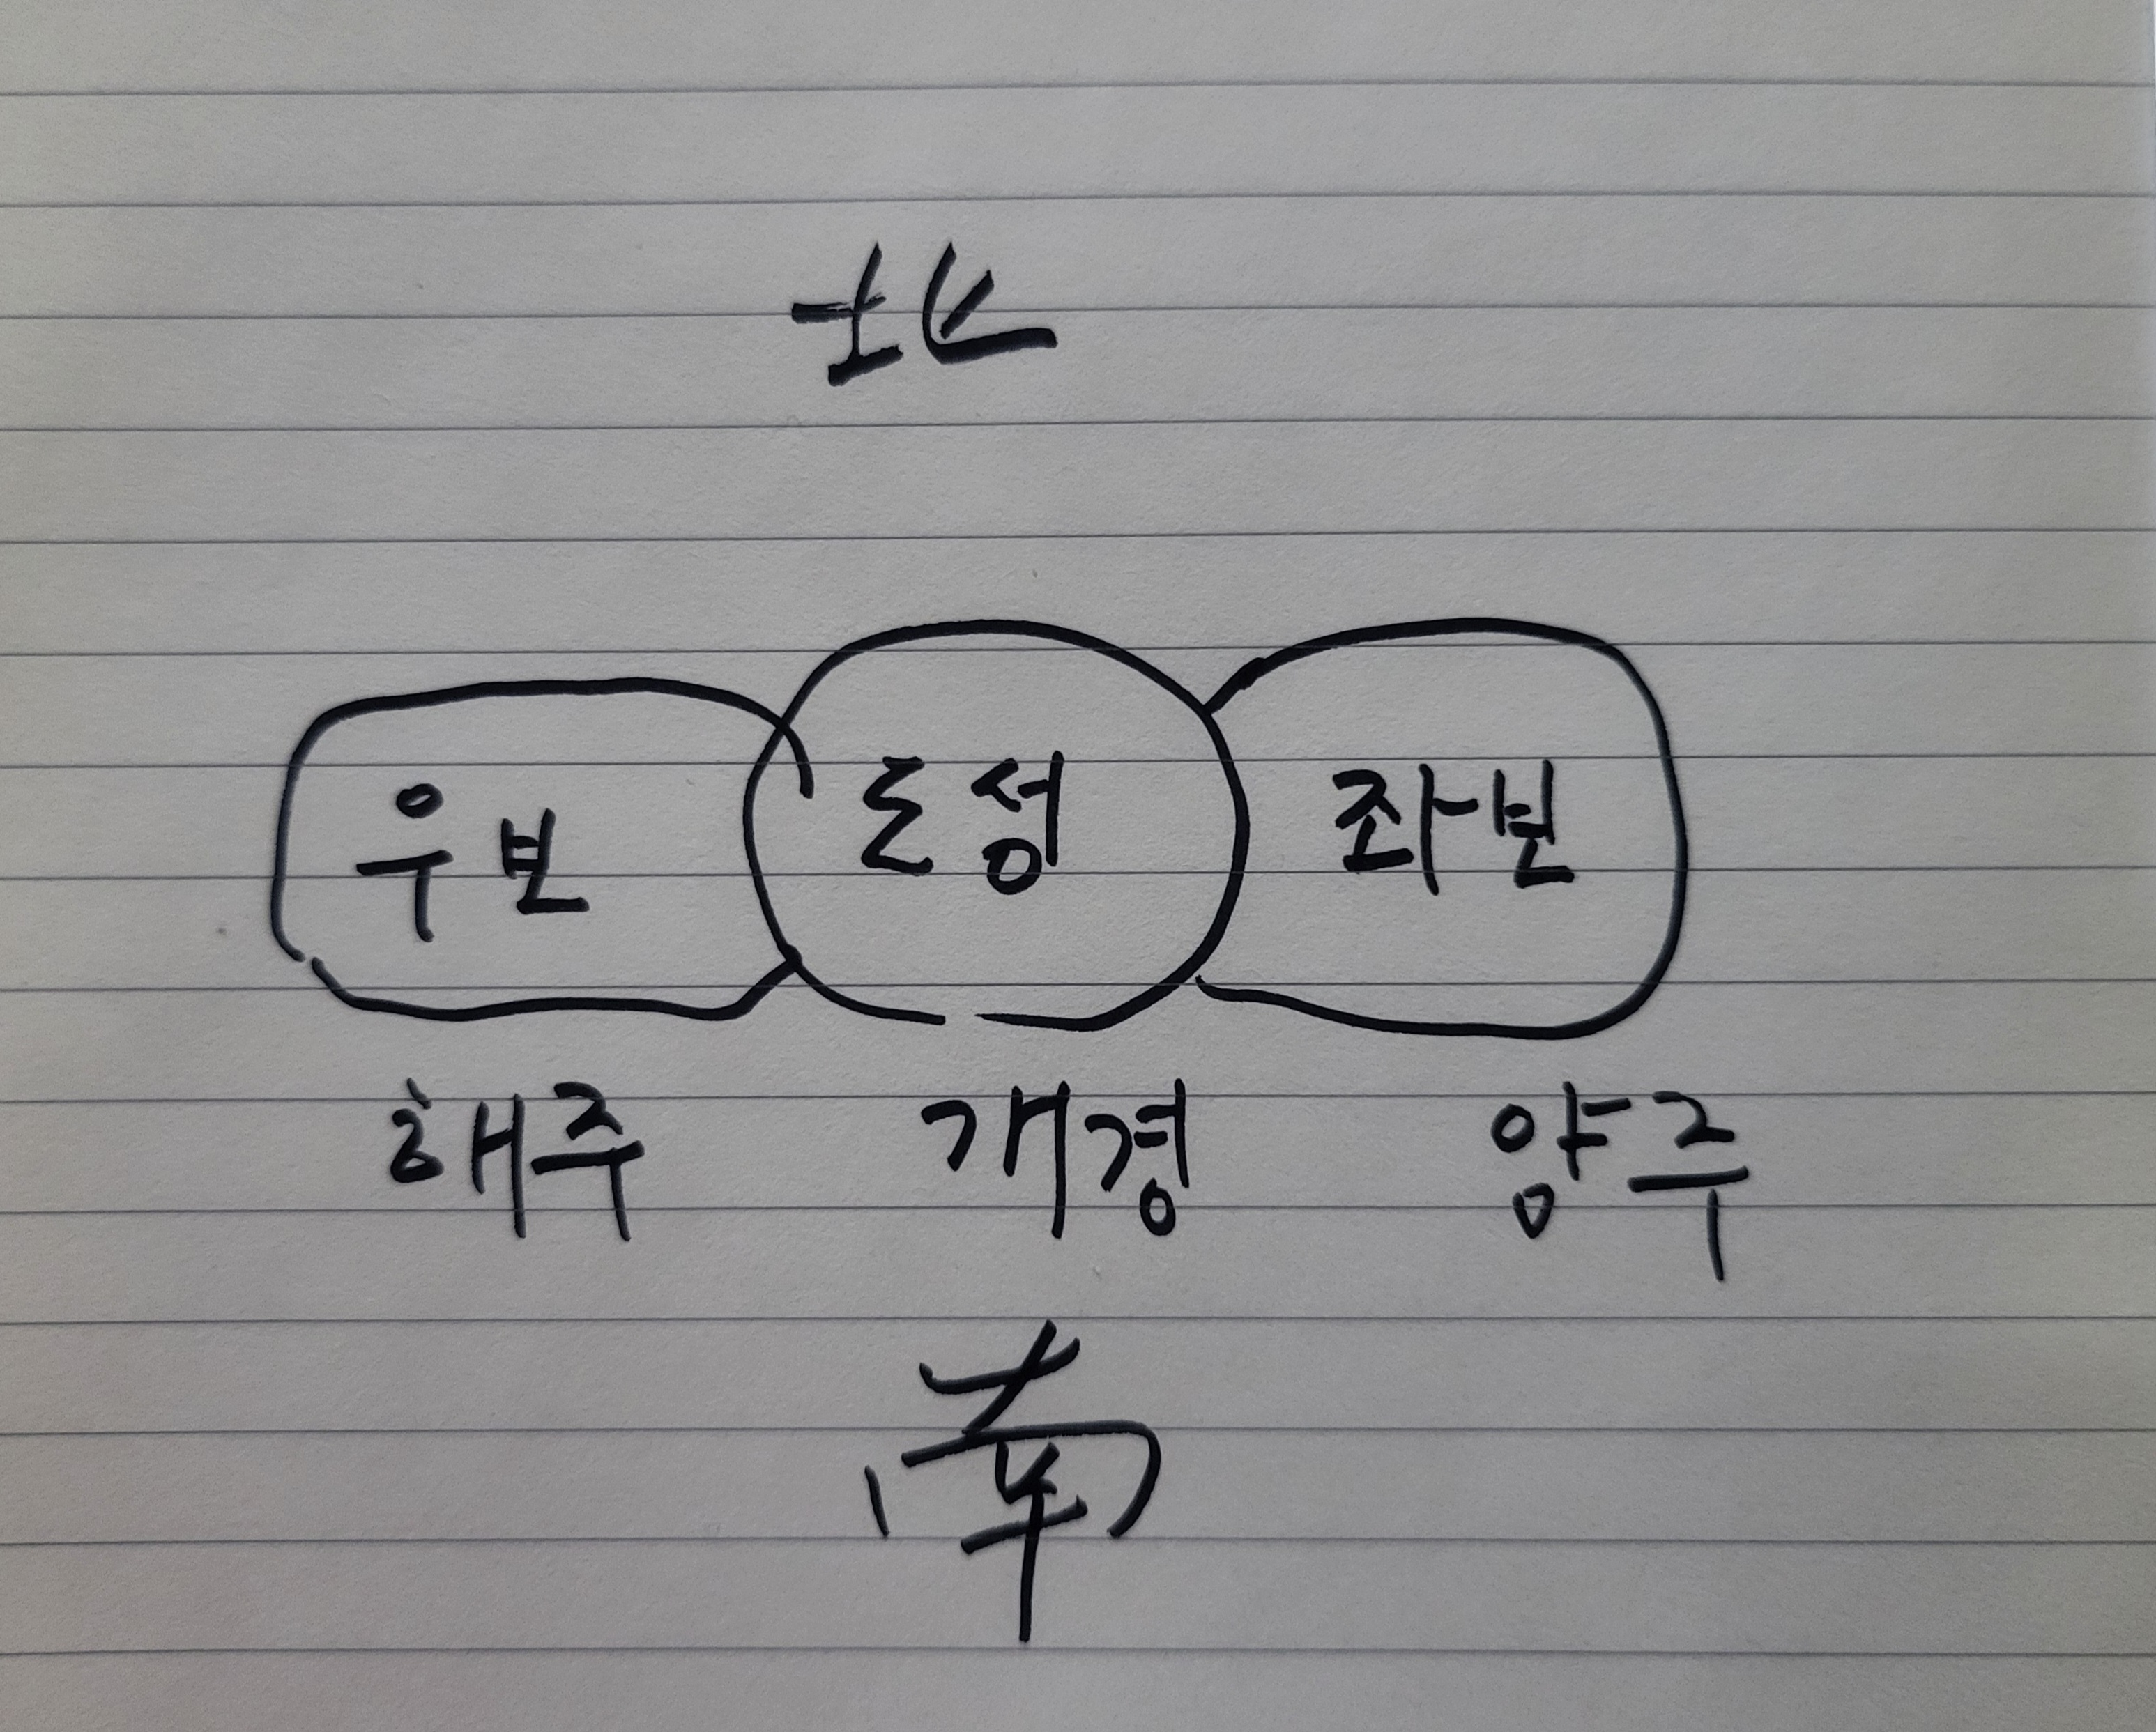 北
우보 도성 좌보
해주 개경 양주
南